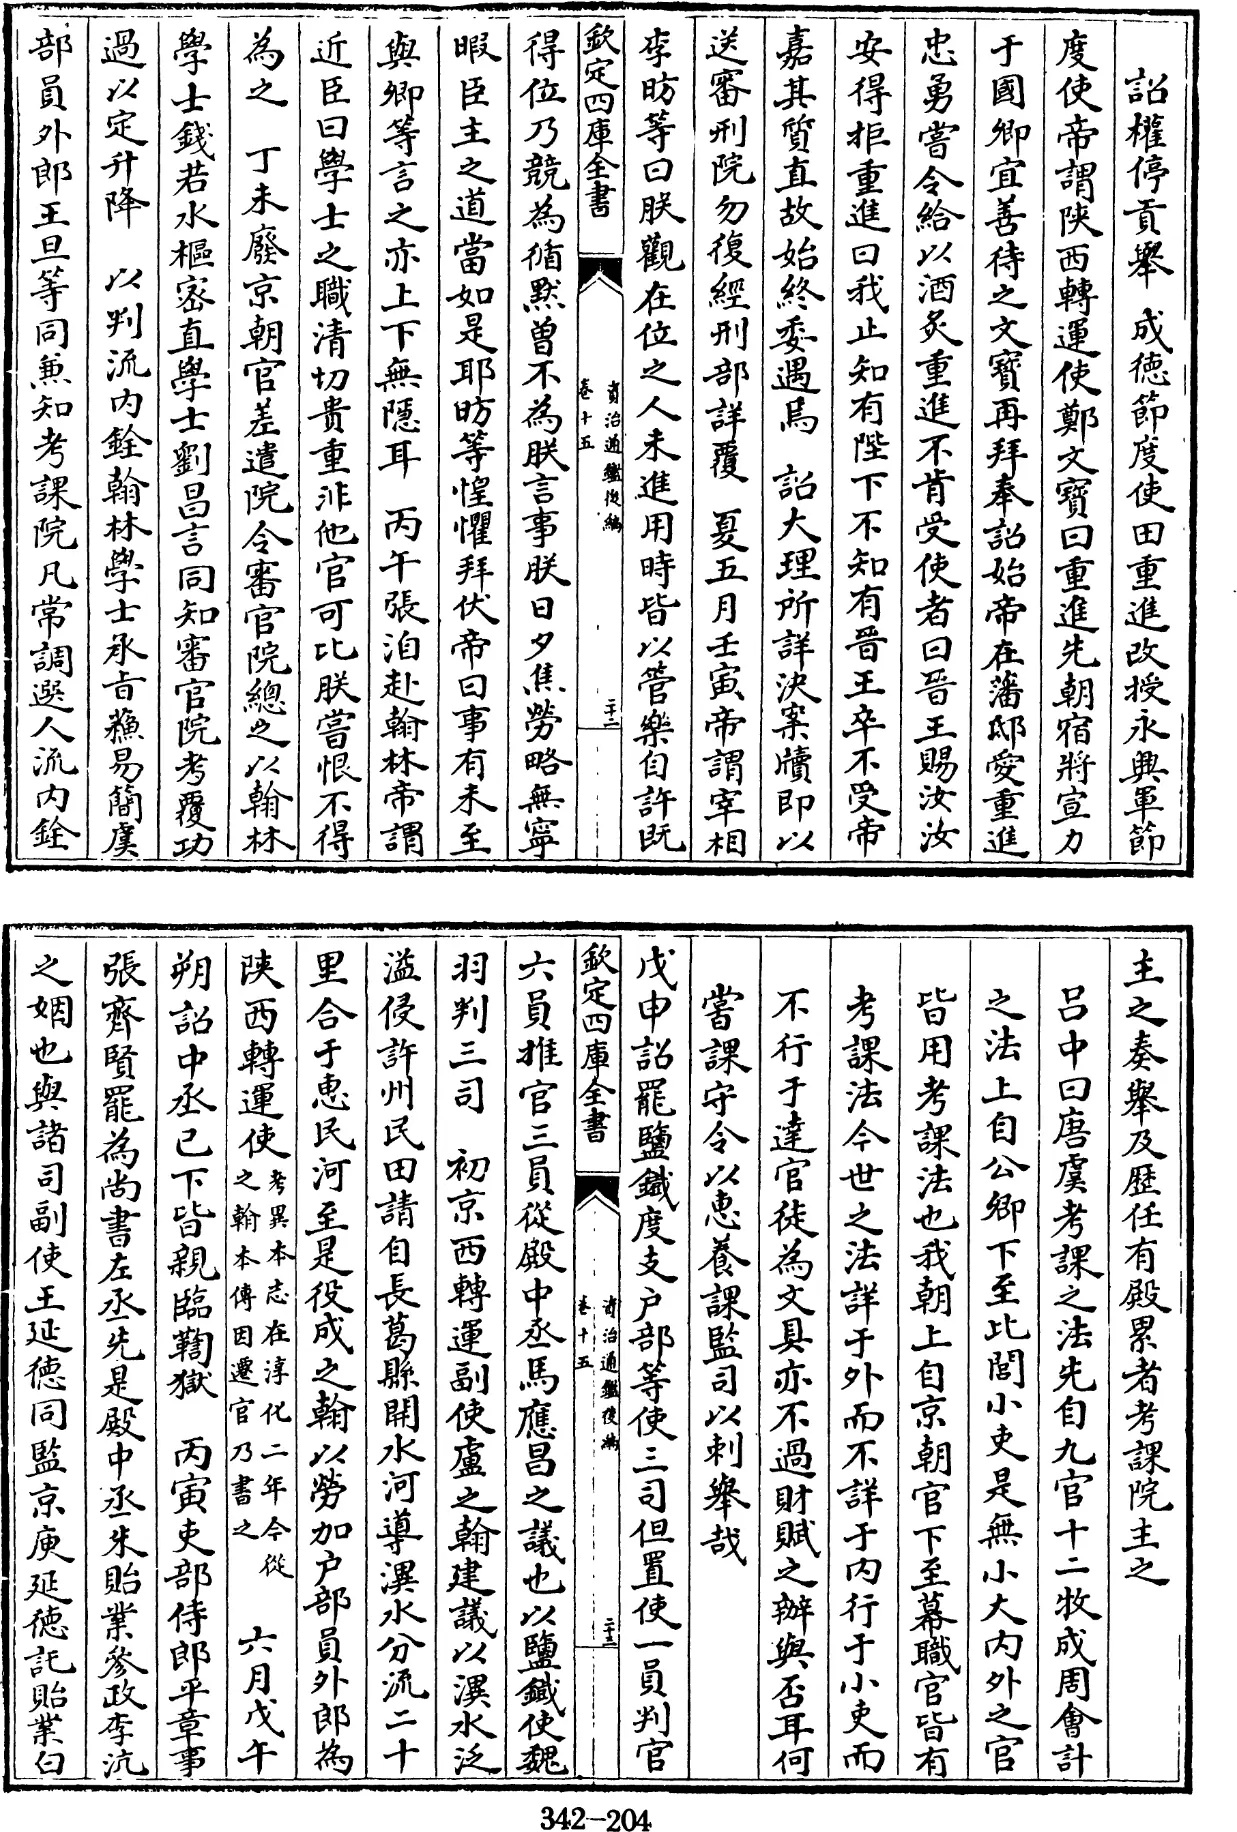 詔權停貢舉　成德節度使田重進改授永興軍節
度使帝謂陜西轉運使鄭文寶曰重進先朝宿將宣力
于國卿宜善待之文寶再拜奉詔始帝在藩邸愛重進
忠勇嘗令給以酒炙重進不肯受使者曰晉王賜汝汝
安得拒重進曰我止知有陛下不知有晉王卒不受帝
嘉其質直故始終委遇焉　詔大理所詳決案牘即以
送審刑院勿復經刑部詳覆　夏五月壬寅帝謂宰相
李昉等曰朕觀在位之人未進用時皆以管樂自許既
欽定四庫全書
資治通鑑後編
卷十五
二十二
得位乃競為循默曽不為朕言事朕日夕焦勞略無寧
暇臣主之道當如是耶昉等惶懼拜伏帝曰事有未至
與卿等言之亦上下無隱耳　丙午張洎赴翰林帝謂
近臣曰學士之職清切貴重非他官可比朕嘗恨不得
為之　丁未廢京朝官差遣院令審官院總之以翰林
學士錢若水樞密直學士劉昌言同知審官院考覆功
過以定升降　以判流内銓翰林學士承旨蘇易簡虞
部員外郎王旦等同兼知考課院凡常調選人流内銓
主之奏舉及歴任有殿累者考課院主之
吕中曰唐虞考課之法先自九官十二牧成周會計
之法上自公卿下至比閭小吏是無小大内外之官
皆用考課法也我朝上自京朝官下至幕職官皆有
考課法今世之法詳于外而不詳于内行于小吏而
不行于達官徒為文具亦不過財賦之辦與否耳何
嘗課守令以惠養課監司以刺舉哉
戊申詔罷鹽鐵度支户部等使三司但置使一員判官
欽定四庫全書
資治通鑑後編
卷十五
二十三
六員推官三員從殿中丞馬應昌之議也以鹽鐵使魏
羽判三司　初京西轉運副使盧之翰建議以潩水泛
溢侵許州民田請自長葛縣開水河導潩水分流二十
里合于惠民河至是役成之翰以勞加户部員外郎為
陜西轉運使考異本志在淳化二年今從之翰本傳因遷官乃書之　六月戊午
朔詔中丞已下皆親臨鞫獄　丙寅吏部侍郎平章事
張齊賢罷為尚書左丞先是殿中丞朱貽業參政李沆
之姻也與諸司副使王延德同監京庾延德託貽業白
342-204